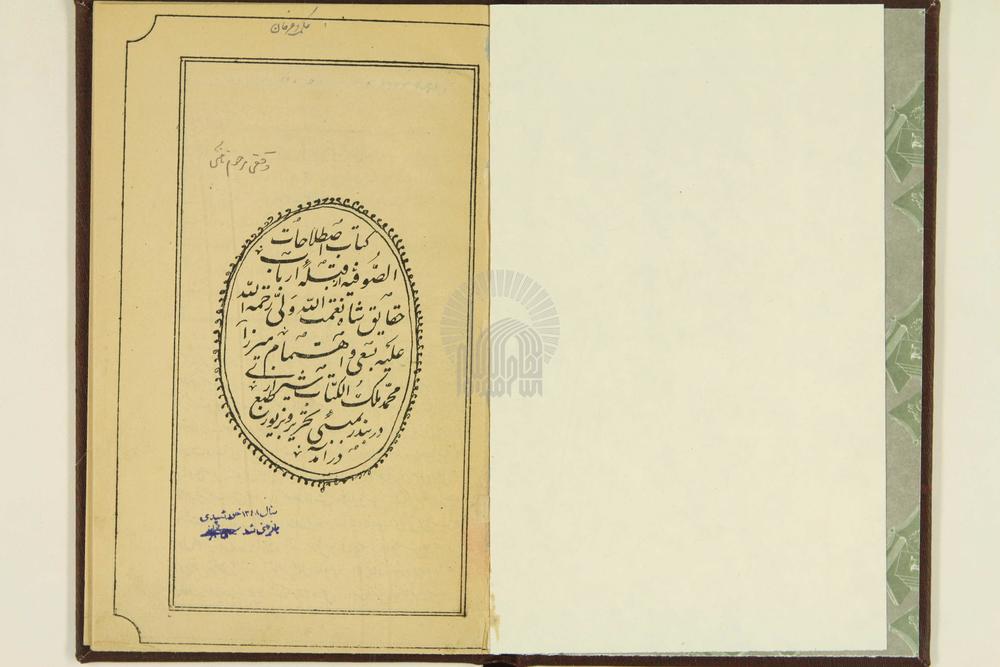 وقفی مرحوم
کتاب اصطلاحات
الصّوفیه از قبله ارباب
حقایق شاه نعمت الله ولی رحمة الله
علیه بسعی و اهتمام میرزا
محمّد ملک الکتّاب شیرازی
در بندر بمبئی بتحریر و بزیور طبع
درآمد
بازبینی شد